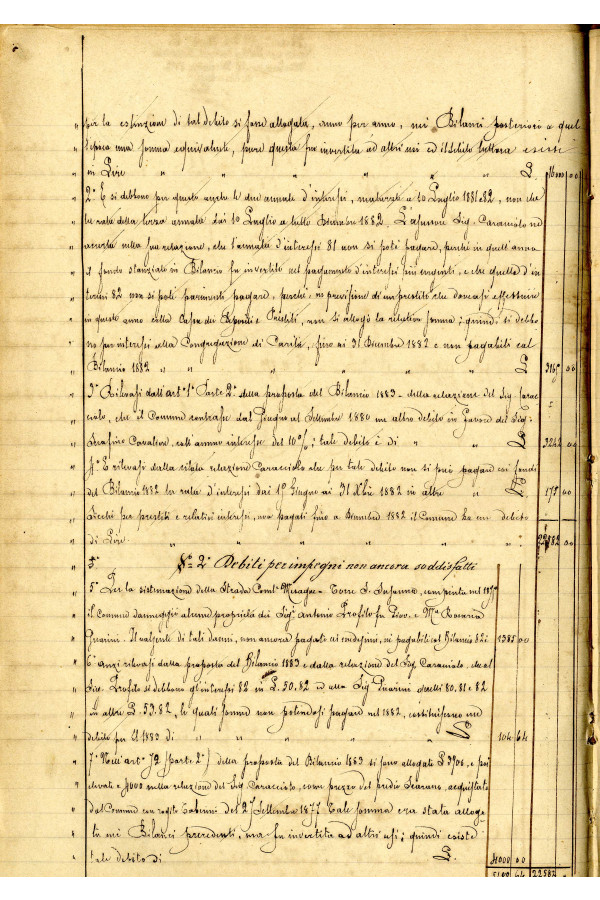 per la estinzione di tal debito si fosse allogata, anno per anno, nei Bilanci posteriori a quel
l'epoca una somma equivalente, pure questa fu invertita ad altri usi ed il debito tuttora esiste
in Lire " " " " " " £. 16000 00
2.° E si debbono per questo anche le due annate d'interessi, maturate a 10 Luglio 1881 e 82, non che
la rata della terza annata dai 10 Luglio a tutto Dicembre 1882. L'assessore Sig. Caracciolo
nella sua relazione, che l'annata d'interessi 81 non si potè pagare, perchè in quell'anno
il fondo stanziato in Bilancio fu invertito nel pagamento d'interessi più urgenti, e che quella d'in
teressi 82 non si potè parimenti pagare, perchè in previsione di un prestito che dovea si effettuire
in questo anno colla Cassa dei Depositi e Prestiti, non si allogò la relativa somma; quindi si debbo
no per interessi alla Congregazione di Carità, fino ai 31 Dicembre 1882 e non pagabili col
Bilancio 1882 " " " " £.
3.° Rilevasi dall'art. 1° Parte 2.a della proposta del Bilancio 1883 - della relazione del Sig. Carac
ciolo, che il Comune contrasse dal Giugno al Settembre 1880 un altro debito in favore del Sig.
Serafino Cavalieri, coll'annuo interesse del 10 %; tale debito è di " " £. 3242 04
4.° E rilevasi dalla citata relazione Caracciolo che per tale debito non si può pagare coi fondi
del Bilancio 1882 la rata d'interessi dai 1° Giugno ai 31 Xbre 1882 in altre " £. 00
Sicchè per prestiti e relativi interessi, non pagati fino a Dicembre 1882 il Comune ha un debito
di Lire " " " " " " 22582 00
5.° §.° 2.° Debiti per impegni non ancora soddisfatti
5.° Per la sistemazione della Strada Com.le Mesagne - Torre S. Susanna, compiuta nel
il Comune danneggiò alcune proprietà dei Sig.i Antonio Profilo fu Giov. e M.a Rosaria
Guarini. Il valsente di tali danni, non ancora pagati ai medesimi, nè pagabili col Bilancio 82 è 1385 00
6.° anzi rilevasi dalla proposta del Bilancio 1883 e dalla relazione del Sig. Caracciolo, che al
Sig. Profilo si debbono gl'interessi 82 in £. 50.82 ed alla Sig. Guarini quelli 80. 81 e 82
in altre £. 53.82, le quali somme non potendosi pagare nel 1882, costituiscono un
debito per il 1883 di " " " " £. 104 64
7.° Nell'art. 72 (parte 2.a) della proposta del Bilancio 1883 si sono allogate £. 3706, e poi
elevate a 4000 nella relazione del Sig. Caracciolo, come prezzo del predio Scarano, acquistato
dal Comune con rogito del 27 Settembre 1877. Tale somma era stata alloga
ta nei Bilanci precedenti, ma fu invertita ad altri usi; quindi esiste
tale debito di £. 4000 00
22582